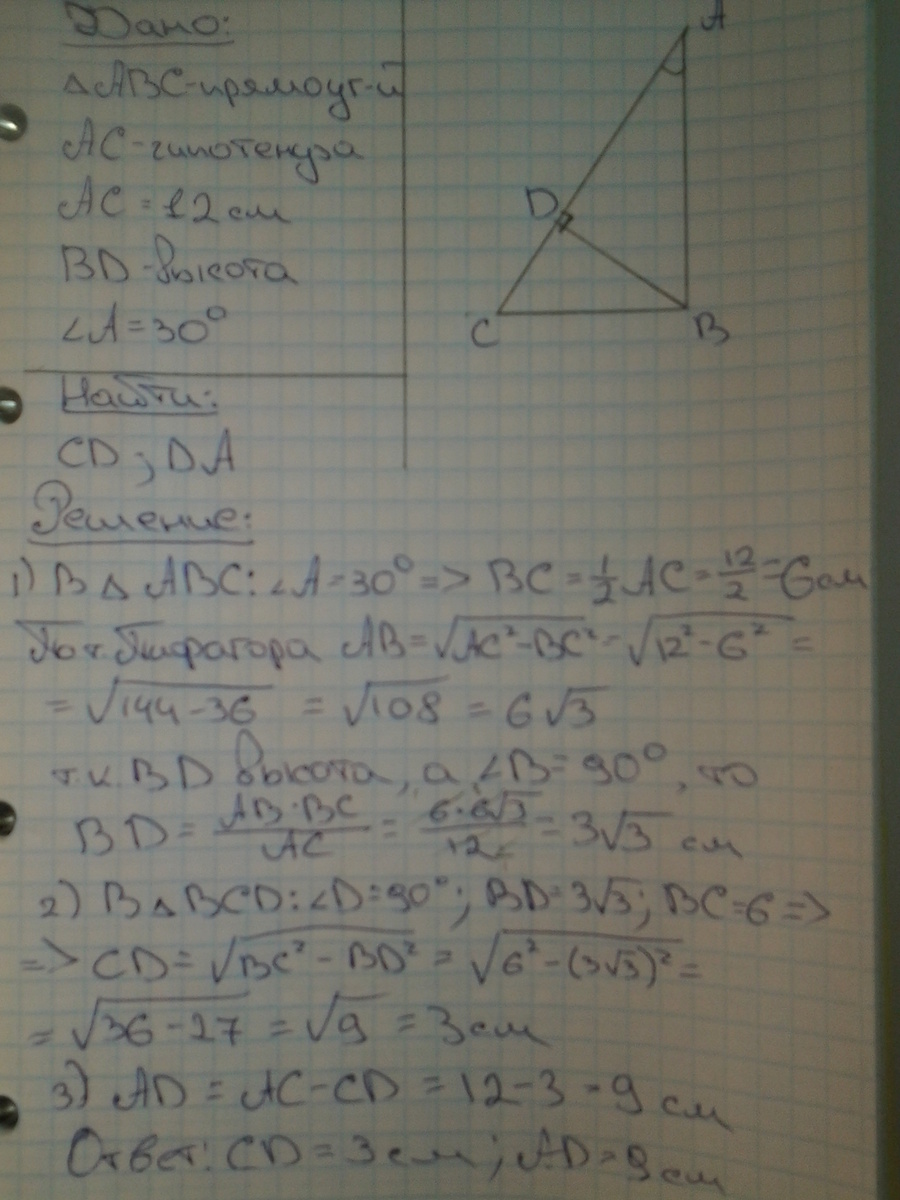 Дано:
△ABC-прямоуг-й
AC-гипотенуза
AC = 12 см
BD-высота
∠A = 30°
Найти:
CD ; DA
A
D
C
B
Решение:
1) В △ ABC: ∠A = 30° => BC = 1/2 AC = 12/2 = 6 см
По т. Пифагора AB = √(AC² - BC²) = √(12² - 6²) =
= √(144 - 36) = √108 = 6√3
т.к. BD высота, а ∠B = 90°, то
BD = (AB · BC)/AC = (6·6√3)/12 = 3√3 см
2) В △ BCD: ∠D = 90°; BD = 3√3; BC = 6 =>
=> CD = √(BC² - BD²) = √(6² - (3√3)²) =
= √(36 - 27) = √9 = 3 см
3) AD = AC - CD = 12 - 3 = 9 см
Ответ: CD = 3 см ; AD = 9 см